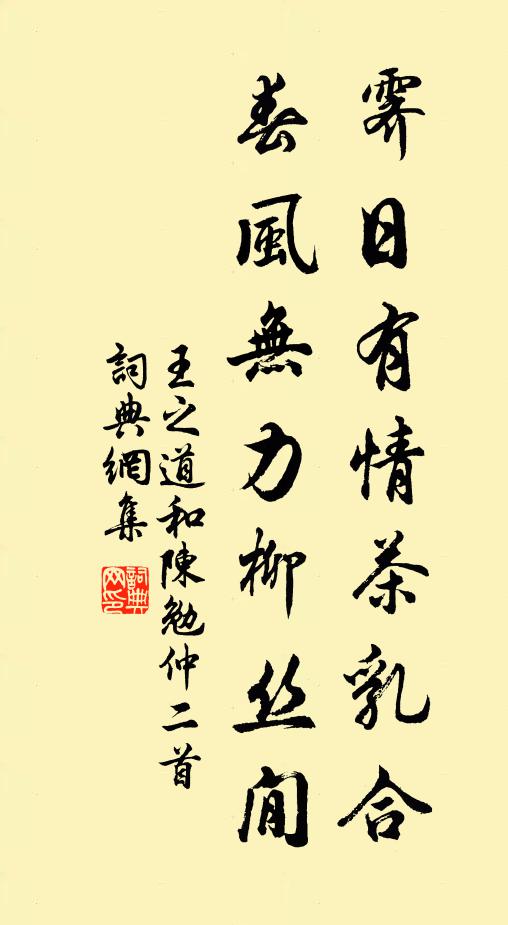 霽日有情茶乳合
春風無力柳丝閒
王之道和陳勉仲二首
詞典網集
詞典網印